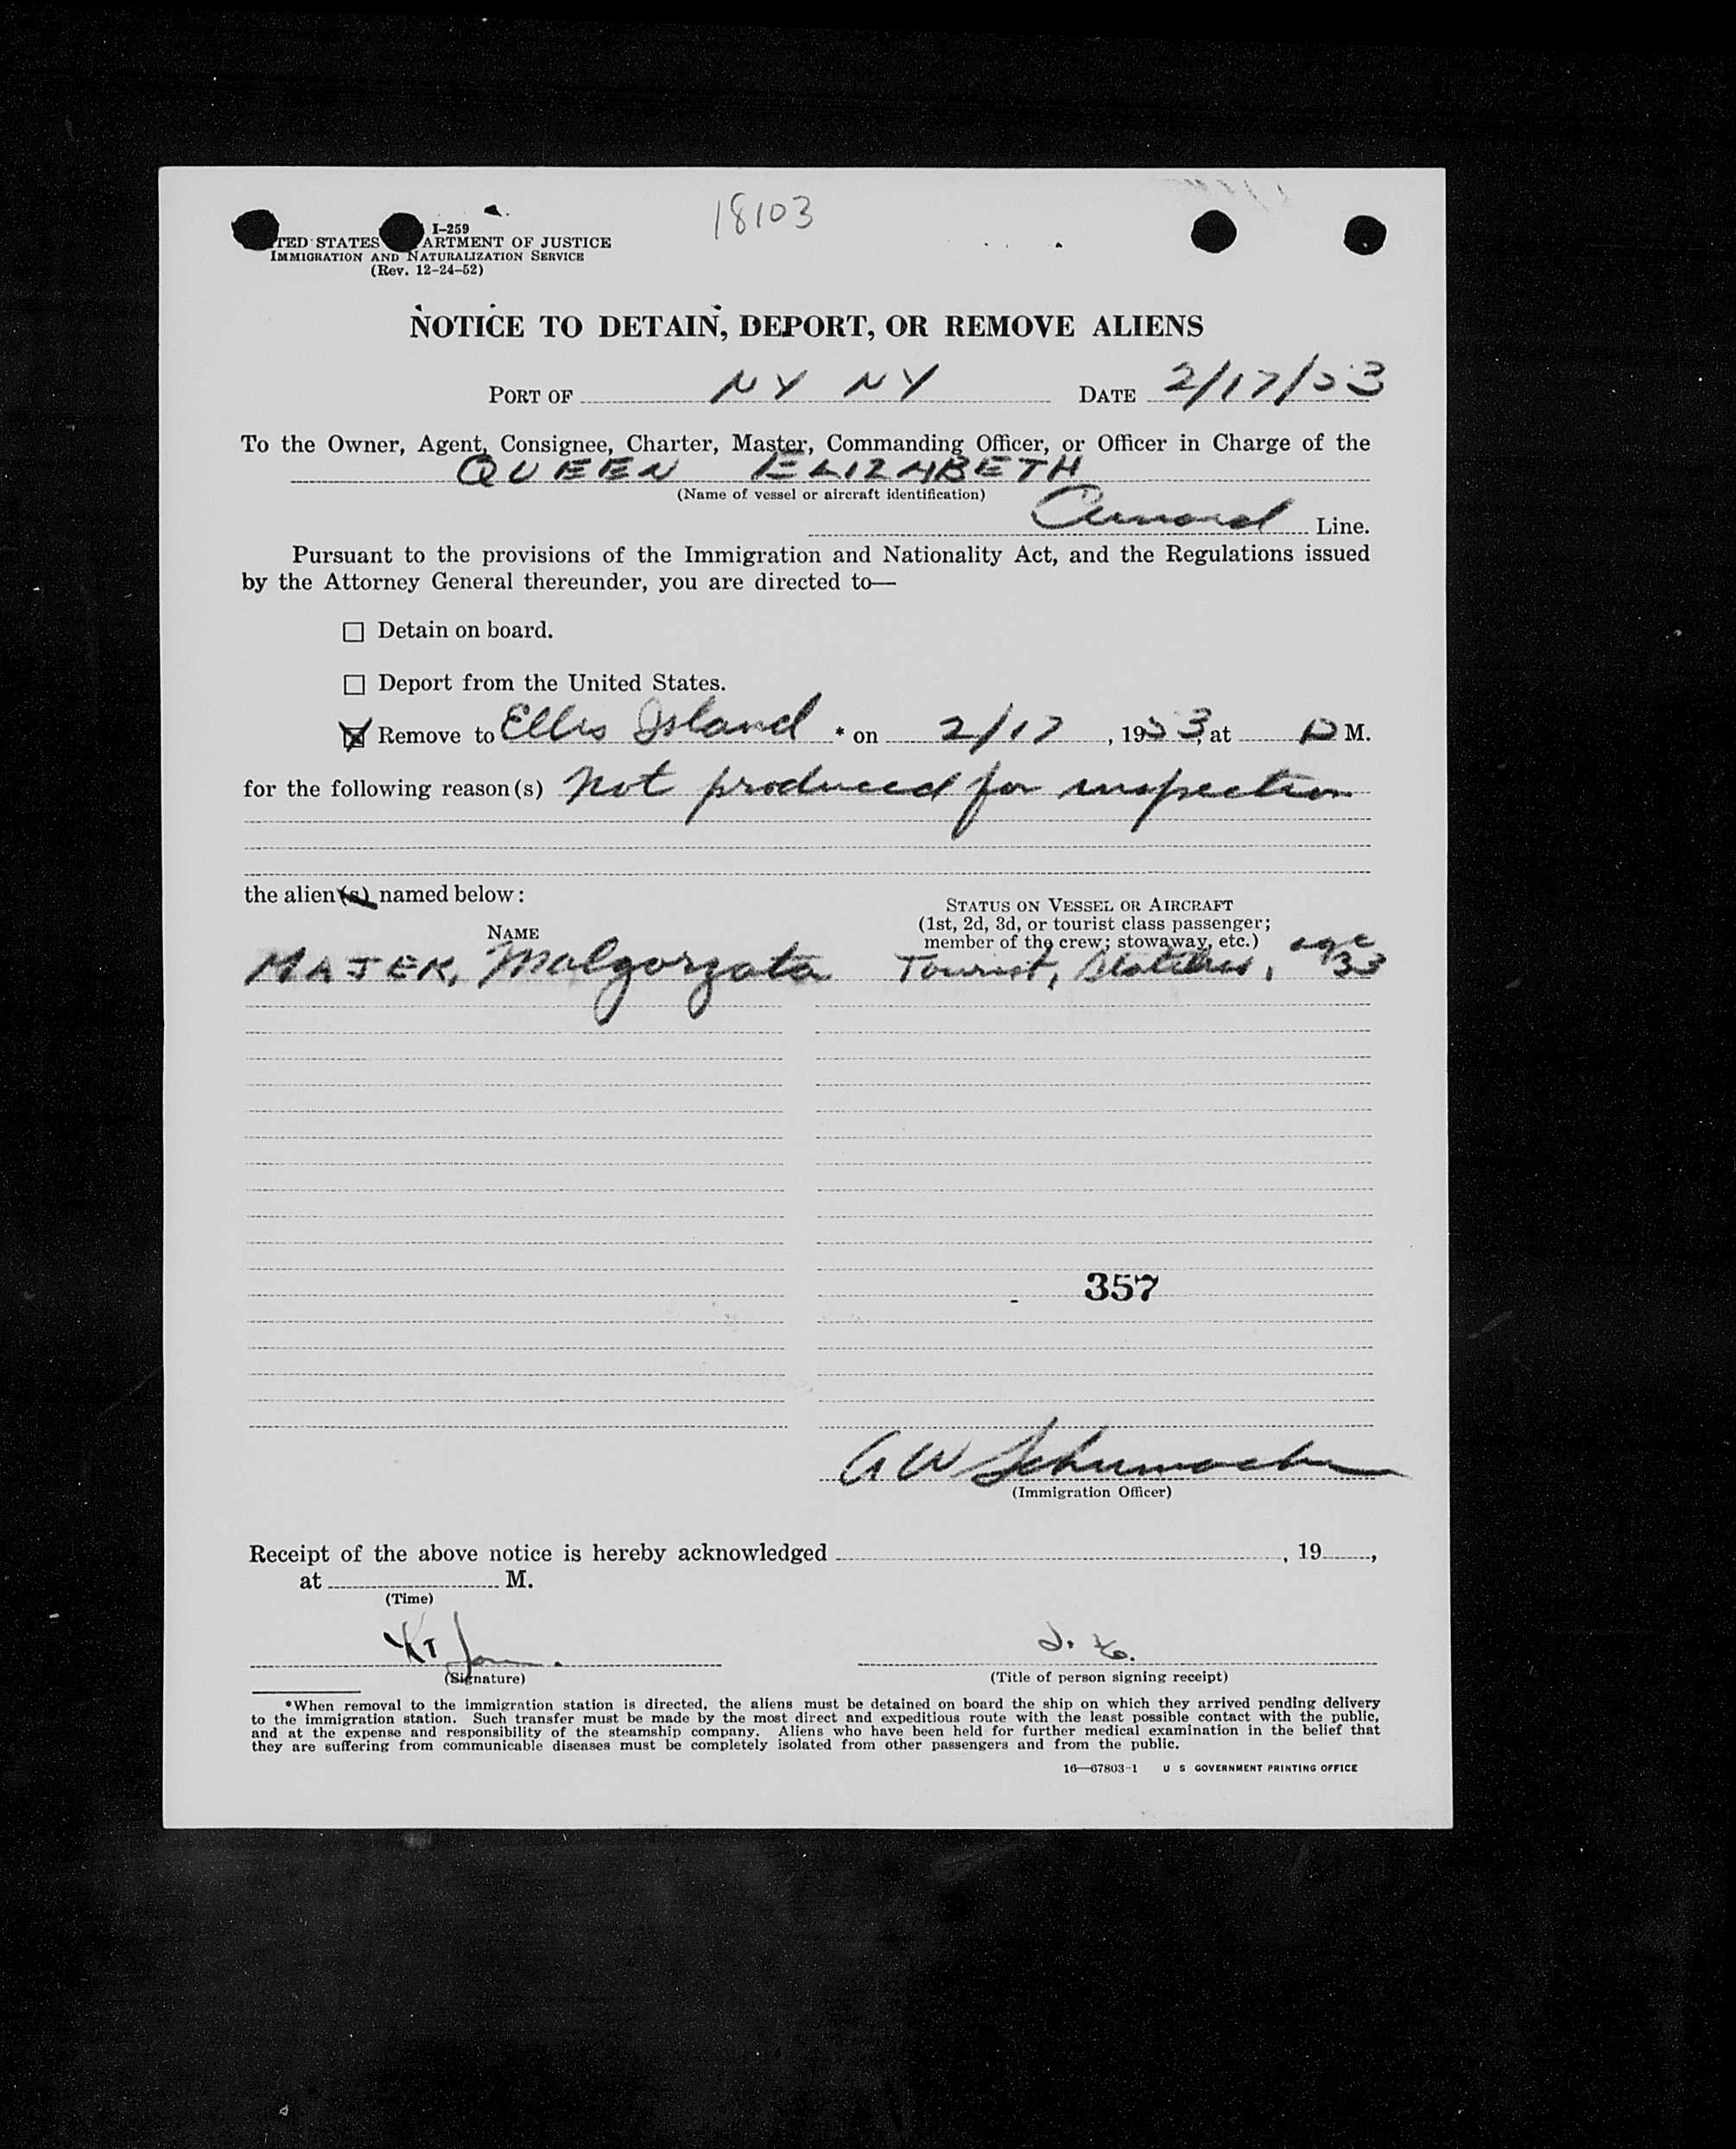 18103
I-259
TED STATES ARTMENT OF JUSTICE
IMMIGRATION AND NATURALIZATION SERVICE
(Rev. 12-24-52)
NOTICE TO DETAIN, DEPORT, OR REMOVE ALIENS
PORT OF NY NY DATE 2/17/53
To the Owner, Agent, Consignee, Charter, Master, Commanding Officer, or Officer in Charge of the
QUEEN ELIZABETH
(Name of vessel or aircraft identification)
Cunard Line.
Pursuant to the provisions of the Immigration and Nationality Act, and the Regulations issued
by the Attorney General thereunder, you are directed to—
Detain on board.
Deport from the United States.
Remove to Ellis Island * on 2/17, 1953, at P M.
for the following reason(s) Not produced for inspection
the alien(s) named below:
NAME
STATUS ON VESSEL OR AIRCRAFT
(1st, 2d, 3d, or tourist class passenger;
member of the crew; stowaway, etc.)
MAJEK, Malgorzata Tourist, age 33
357
A W Schumacher
(Immigration Officer)
Receipt of the above notice is hereby acknowledged , 19 ,
at M.
(Time)
(Signature)
(Title of person signing receipt)
*When removal to the immigration station is directed, the aliens must be detained on board the ship on which they arrived pending delivery
to the immigration station. Such transfer must be made by the most direct and expeditious route with the least possible contact with the public,
and at the expense and responsibility of the steamship company. Aliens who have been held for further medical examination in the belief that
they are suffering from communicable diseases must be completely isolated from other passengers and from the public.
16—67803-1 U S GOVERNMENT PRINTING OFFICE